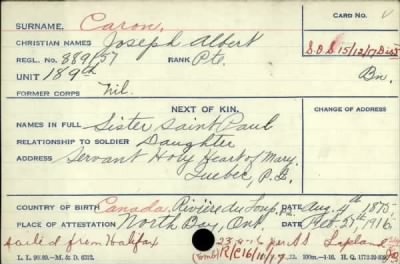 CARD NO.
SURNAME. Caron.
CHRISTIAN NAMES Joseph Albert
S.O.S 15/12/17
REGL. NO. 889157 RANK Pte.
UNIT 189th Bn.
FORMER CORPS Nil.
NEXT OF KIN.
CHANGE OF ADDRESS
NAMES IN FULL Sister Saint Paul
RELATIONSHIP TO SOLDIER Daughter
ADDRESS Servant Holy Heart of Mary.
Quebec, P.Q.
COUNTRY OF BIRTH Canada, Rivière du Loup, P.Q. DATE Aug. 4th 1875
PLACE OF ATTESTATION North Bay, Ont. DATE Feb. 25th, 1916.
sailed from Halifax 23-9-16 per SS Lapland
R/C 16/10/17
L. L. 90.89.—M. & D. 6312.